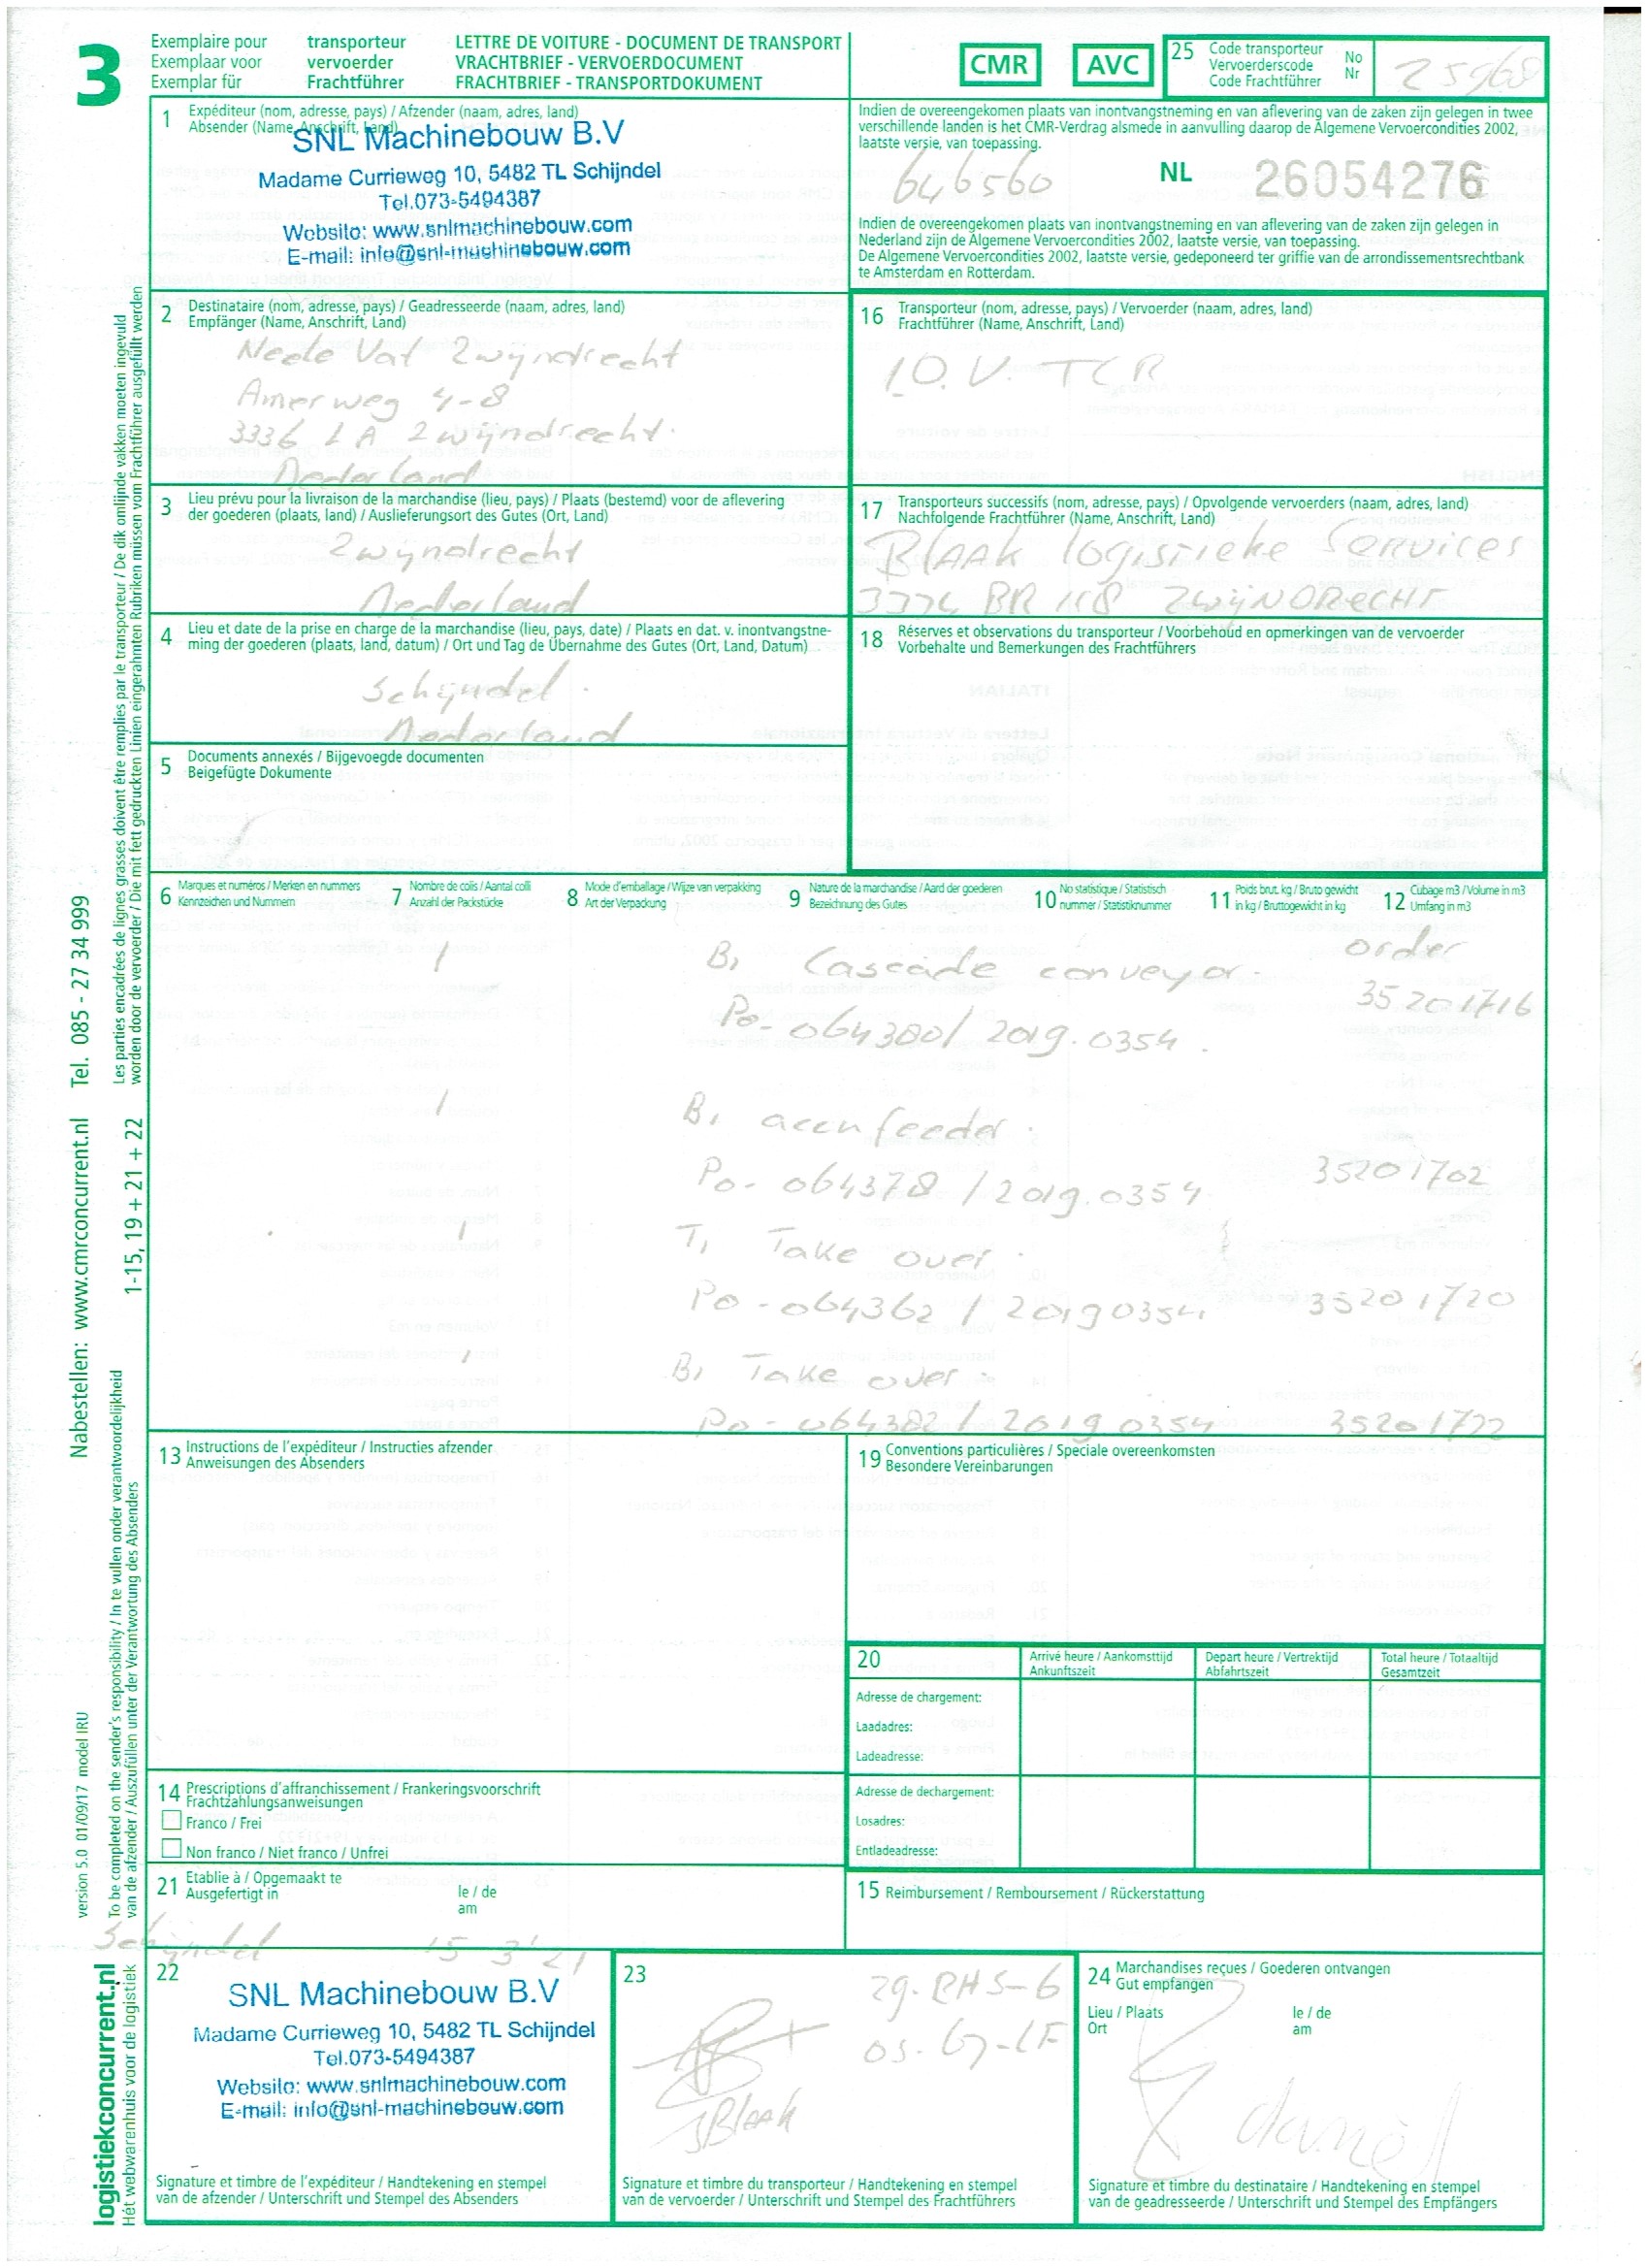 3
Exemplaire pour transporteur LETTRE DE VOITURE - DOCUMENT DE TRANSPORT
Exemplaar voor vervoerder VRACHTBRIEF - VERVOERDOCUMENT
Exemplar für Frachtführer FRACHTBRIEF - TRANSPORTDOKUMENT
CMR
AVC
25 Code transporteur
Vervoerderscode
Code Frachtführer
No
Nr
25968
1 Expéditeur (nom, adresse, pays) / Afzender (naam, adres, land)
Absender (Name, Anschrift, Land)
SNL Machinebouw B.V
Madame Currieweg 10, 5482 TL Schijndel
Tel.073-5494387
Website: www.snlmachinebouw.com
E-mail: info@snl-machinebouw.com
Indien de overeengekomen plaats van inontvangstneming en van aflevering van de zaken zijn gelegen in twee
verschillende landen is het CMR-Verdrag alsmede in aanvulling daarop de Algemene Vervoercondities 2002,
laatste versie, van toepassing.
646560 NL 26054276
Indien de overeengekomen plaats van inontvangstneming en van aflevering van de zaken zijn gelegen in
Nederland zijn de Algemene Vervoercondities 2002, laatste versie, van toepassing.
De Algemene Vervoercondities 2002, laatste versie, gedeponeerd ter griffie van de arrondissementsrechtbank
te Amsterdam en Rotterdam.
2 Destinataire (nom, adresse, pays) / Geadresseerde (naam, adres, land)
Empfänger (Name, Anschrift, Land)
Nede Vat Zwyndrecht
Amerweg 4-8
3336 LA Zwijndrecht.
Nederland
16 Transporteur (nom, adresse, pays) / Vervoerder (naam, adres, land)
Frachtführer (Name, Anschrift, Land)
I.O.V. TCR
3 Lieu prévu pour la livraison de la marchandise (lieu, pays) / Plaats (bestemd) voor de aflevering
der goederen (plaats, land) / Auslieferungsort des Gutes (Ort, Land)
Zwyndrecht
Nederland
17 Transporteurs successifs (nom, adresse, pays) / Opvolgende vervoerders (naam, adres, land)
Nachfolgende Frachtführer (Name, Anschrift, Land)
Blaak logistieke Services
3334 BR 118 Zwijndrecht
4 Lieu et date de la prise en charge de la marchandise (lieu, pays, date) / Plaats en dat. v. inontvangstne-
ming der goederen (plaats, land, datum) / Ort und Tag de Übernahme des Gutes (Ort, Land, Datum)
Schijndel.
Nederland
18 Réserves et observations du transporteur / Voorbehoud en opmerkingen van de vervoerder
Vorbehalte und Bemerkungen des Frachtführers
5 Documents annexés / Bijgevoegde documenten
Beigefügte Dokumente
6 Marques et numéros / Merken en nummers
Kennzeichen und Nummern
7 Nombre de colis / Aantal colli
Anzahl der Packstücke
8 Mode d'emballage / Wijze van verpakking
Art der Verpackung
9 Nature de la marchandise / Aard der goederen
Bezeichnung des Gutes
10 No statistique / Statistisch
nummer / Statistiknummer
11 Poids brut. kg / Bruto gewicht
in kg / Bruttogewicht in kg
12 Cubage m3 / Volume in m3
Umfang in m3
1 B1 Cascade conveyor. order
Po- 064380/ 2019.0354. 35201716
1 B1 accnfeeder.
Po- 064378 / 2019.0354. 35201702
1 T1 Take over.
Po - 064362 / 20190354. 35201720
1 B1 Take over.
Po - 064382 / 2019 0354 35201722
13 Instructions de l'expéditeur / Instructies afzender
Anweisungen des Absenders
19 Conventions particulières / Speciale overeenkomsten
Besondere Vereinbarungen
20 Arrivé heure / Aankomsttijd
Ankunftszeit
Depart heure / Vertrektijd
Abfahrtszeit
Total heure / Totaaltijd
Gesamtzeit
Adresse de chargement:
Laadadres:
Ladeadresse:
Adresse de dechargement:
Losadres:
Entladeadresse:
14 Prescriptions d'affranchissement / Frankeringsvoorschrift
Frachtzahlungsanweisungen
Franco / Frei
Non franco / Niet franco / Unfrei
21 Etablie à / Opgemaakt te
Ausgefertigt in
le / de
am
Schijndel 15 3 '21
15 Reimbursement / Remboursement / Rückerstattung
22
SNL Machinebouw B.V
Madame Currieweg 10, 5482 TL Schijndel
Tel.073-5494387
Website: www.snlmachinebouw.com
E-mail: info@snl-machinebouw.com
Signature et timbre de l'expéditeur / Handtekening en stempel
van de afzender / Unterschrift und Stempel des Absenders
23
JBlaak
Signature et timbre du transporteur / Handtekening en stempel
van de vervoerder / Unterschrift und Stempel des Frachtführers
24 Marchandises reçues / Goederen ontvangen
Gut empfangen
Lieu / Plaats
Ort
le / de
am
daniel
Signature et timbre du destinataire / Handtekening en stempel
van de geadresseerde / Unterschrift und Stempel des Empfängers
Les parties encadrées de lignes grasses doivent être remplies par le transporteur / De dik omlijnde vakken moeten ingevuld
worden door de vervoerder / Die mit fett gedruckten Linien eingerahmten Rubriken müssen vom Frachtführer ausgefüllt werden
Nabestellen: www.cmrconcurrent.nl Tel. 085 - 27 34 999
1-15, 19 + 21 + 22
version 5.0 01/09/17 model IRU
To be completed on the sender's responsibility / In te vullen onder verantwoordelijkheid
van de afzender / Auszufüllen unter der Verantwortung des Absenders
logistiekconcurrent.nl
Hét webwarenhuis voor de logistiek